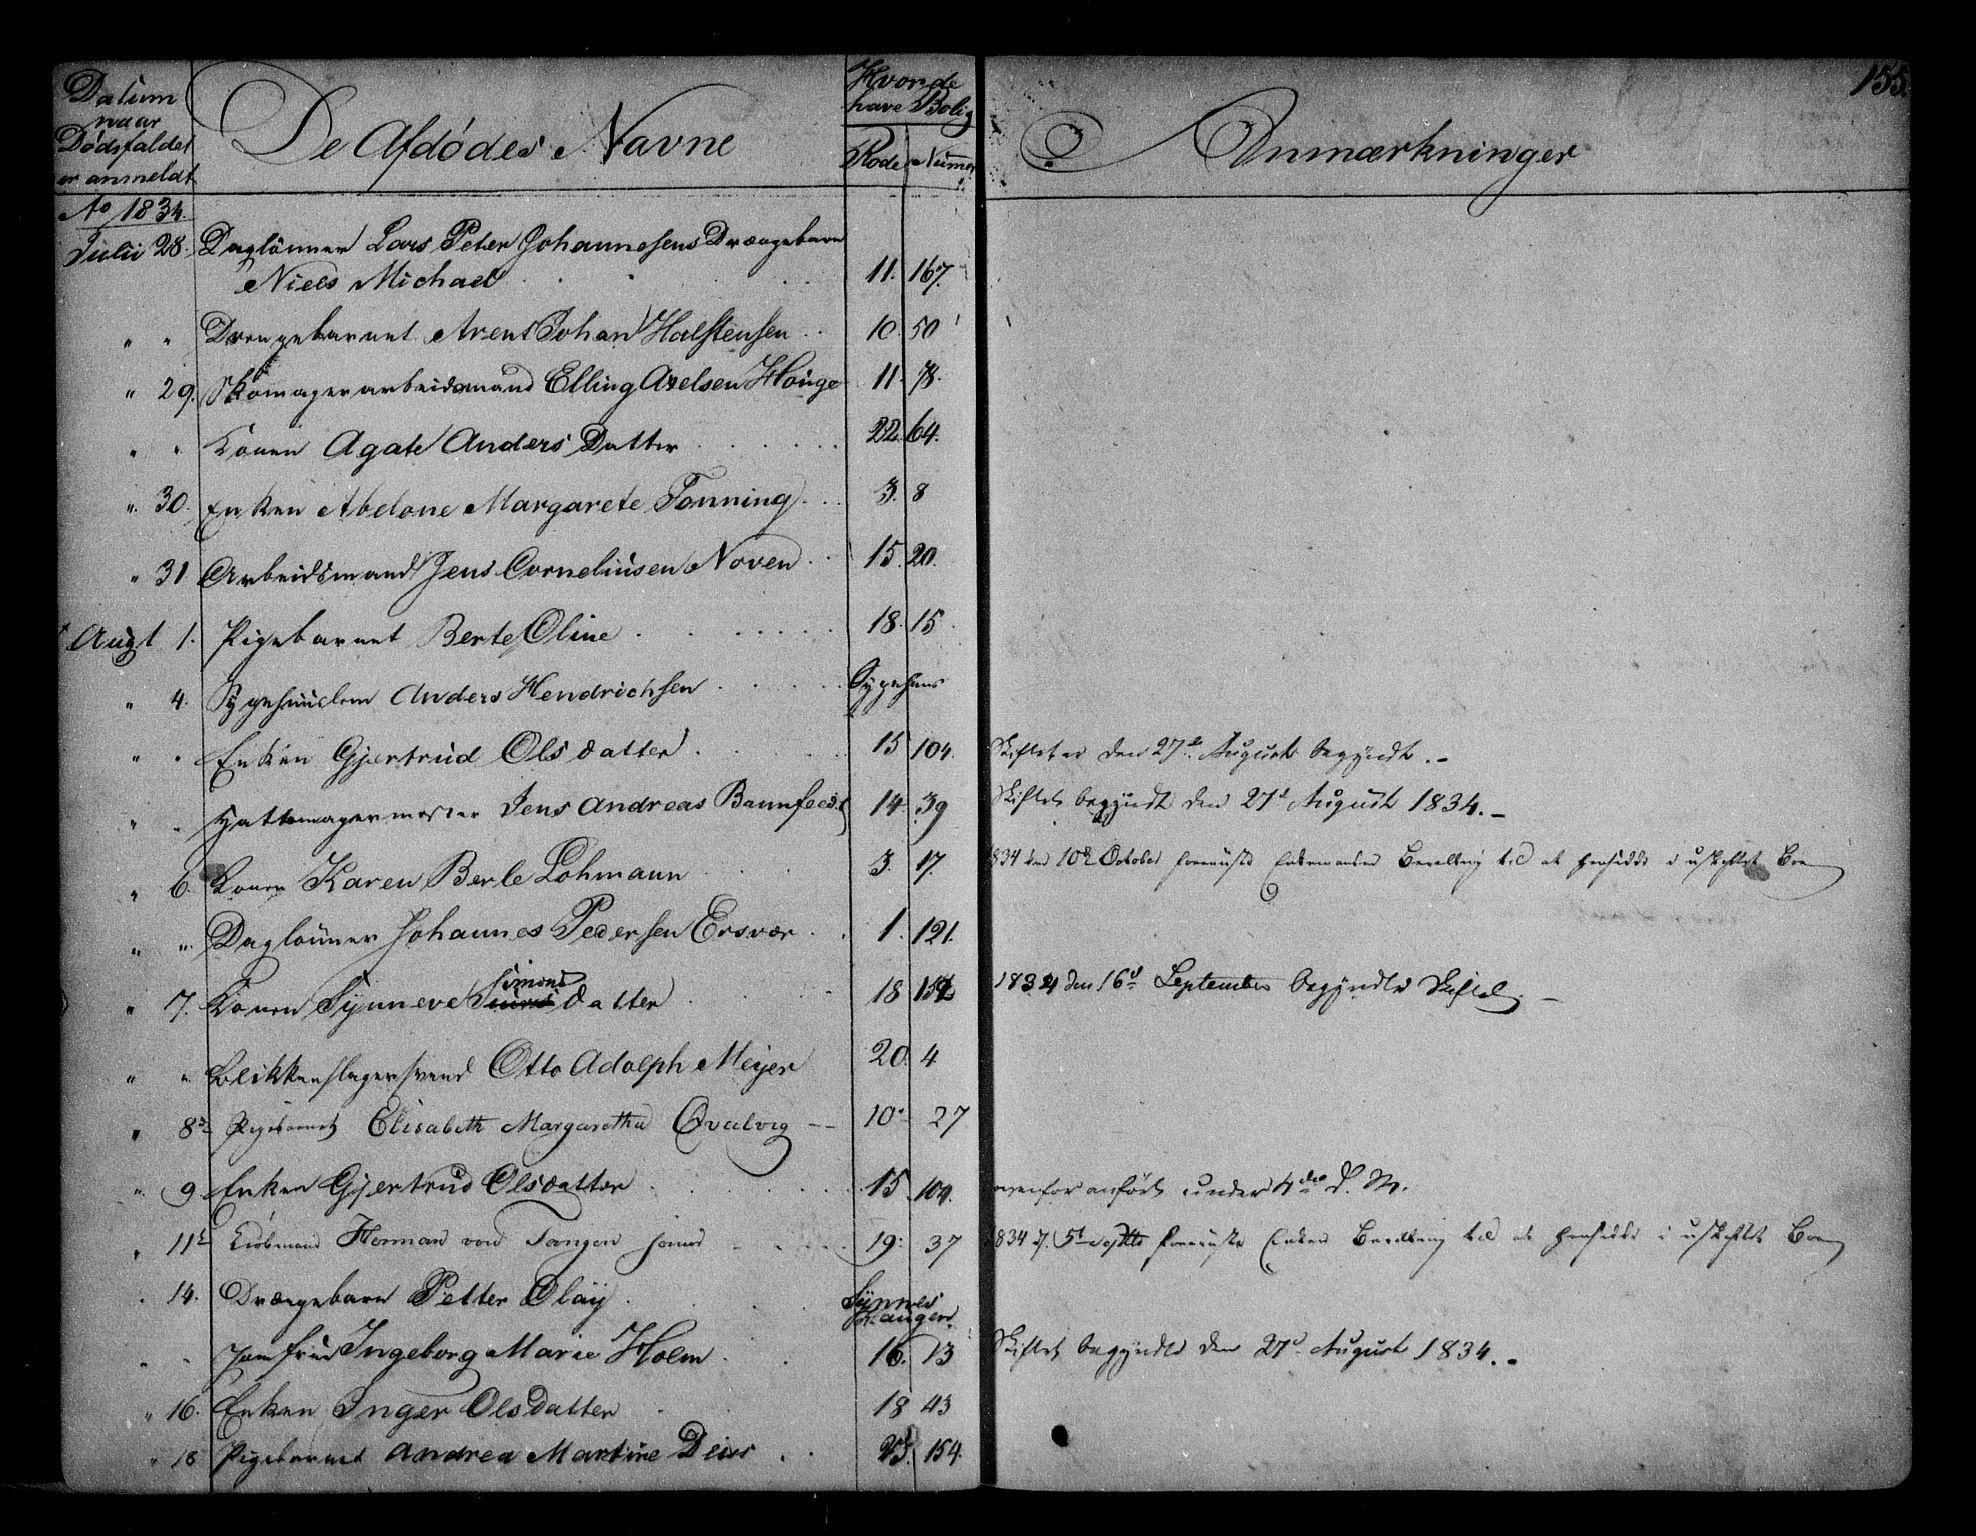 155.
Datum naar Dødsfaldet er anmeldt
De Afdødes Navne
Hvor de have Bolig
Rode Nummer
Anmærkninger
Ao 1834.
Julii 28. Daglönner Lars Peter Johannesens Drængebarn
Niels Michael . . . 11. 167.
" " Drengebarnet Arent Johan Halstensen . . 10. 50
" 29. Skomagerarbeidsmand Elling Axelsen Houge 11. 78.
" " Konen Agate Anders Datter . . . 22. 64.
" 30. Enken Abelone Margarete Tonning . . . 3. 8
" 31 Arbeidsmand Jens Corneliusen Noven . 15. 20.
Augt 1. Pigebarnet Berte Oline . . . 18. 15
" 4. Sygehuuslem Anders Hendrichsen . . . Sygehuus
" " Enken Gjertrud Olsdatter . . . 15 104. Skiftet er den 27de August begyndt. -
" " Hattemagermester Jens Andreas 14 39 Skiftet begyndt den 27d August 1834. -
" 6. Konen Karen Berle Lohmann . . . 3. 17. 1834 den 10de October foreviiste Enkemanden Bevilling til at hensidde i uskiftet Boe
" " Daglönner Johannes Pedersen Ersvær . . 1. 121.
" 7. Konen Synneve Simons datter . . 18 1834 den 16d September begyndte Skiftet. -
" " Blikkenslagersvend Otto Adolph Meyer 20. 4
" 8de Pigebarnet Elisabeth Margaretha Qvalvig -- 10. 27
" 9 Enken Gjertrud Olsdatter . . . 15 104. ovenfor anført under 4de d. M.
" 11te Kiøbmand Herman von Tangen senior - - - 19. 37 1834 d. 5t Septbr foreviiste Enken Bevilling til at hensidde i uskiftet Boe
. 14. Drængebarn Petter Olay . . . Synnes
" " Jomfrue Ingeborg Marie Holm . . 16. 13 Skiftet begyndte den 27d August 1834. -
" 16. Enken Inger Olsdatter . . 18 43
" 18 Pigebarnet Andrea Martine Deis . . 23. 154.